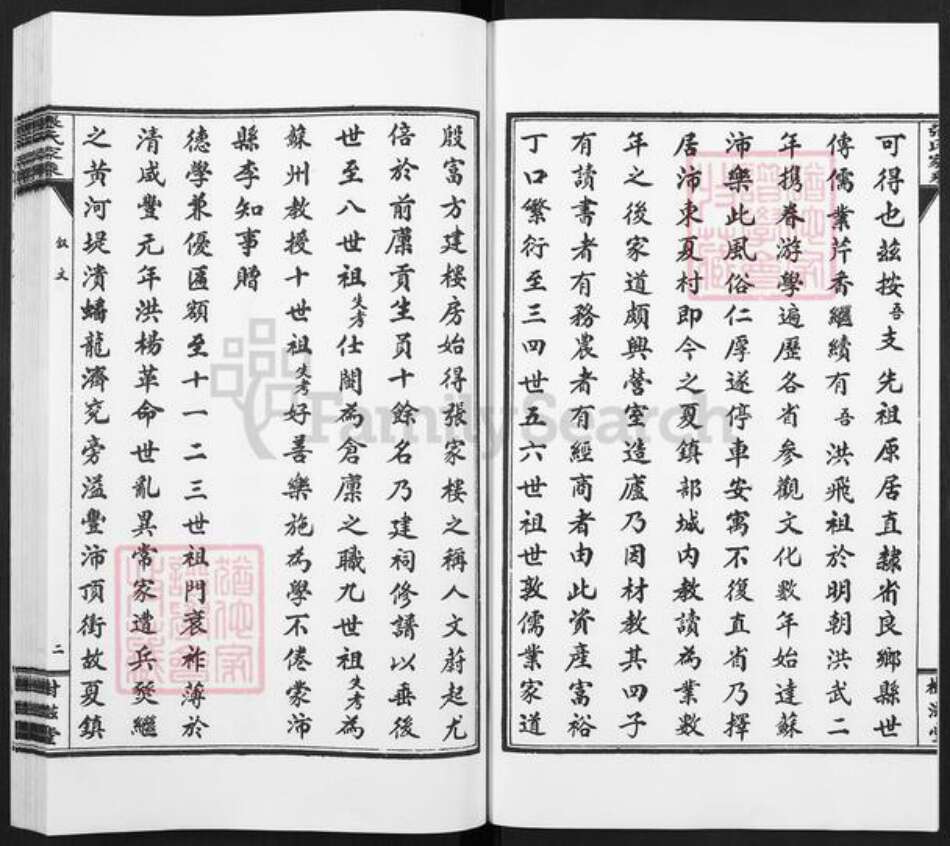 可得也茲按吾支先祖原居直隸省良鄉縣世
傳儒業芹香繼續有吾洪飛祖於明朝洪武二
年携眷游學遍歷各省參觀文化數年始達蘇
沛樂此風俗仁厚遂停車安寓不復直省乃擇
居沛東夏村即今之夏鎮部城內教讀為業數
年之後家道頗興營室造廬乃因材教其四子
有讀書者有務農者有經商者由此資產富裕
丁口繁衍至三四世五六世祖世敦儒業家道
殷富方建樓房始得張家樓之稱人文蔚起尤
倍於前廩貢生員十餘名乃建祠修譜以垂後
世至八世祖失考仕閩為倉廩之職九世祖失考為
蘇州教授十世祖失考好善樂施為學不倦蒙沛
縣李知事贈
德學兼優匾額至十一二三世祖門衰祚薄於
清咸豐元年洪楊革命世亂異常家遭兵燹繼
之黃河堤潰蟠龍濟兗旁溢豐沛頂衝故夏鎮
張氏家乘
敘文
二
FamilySearch